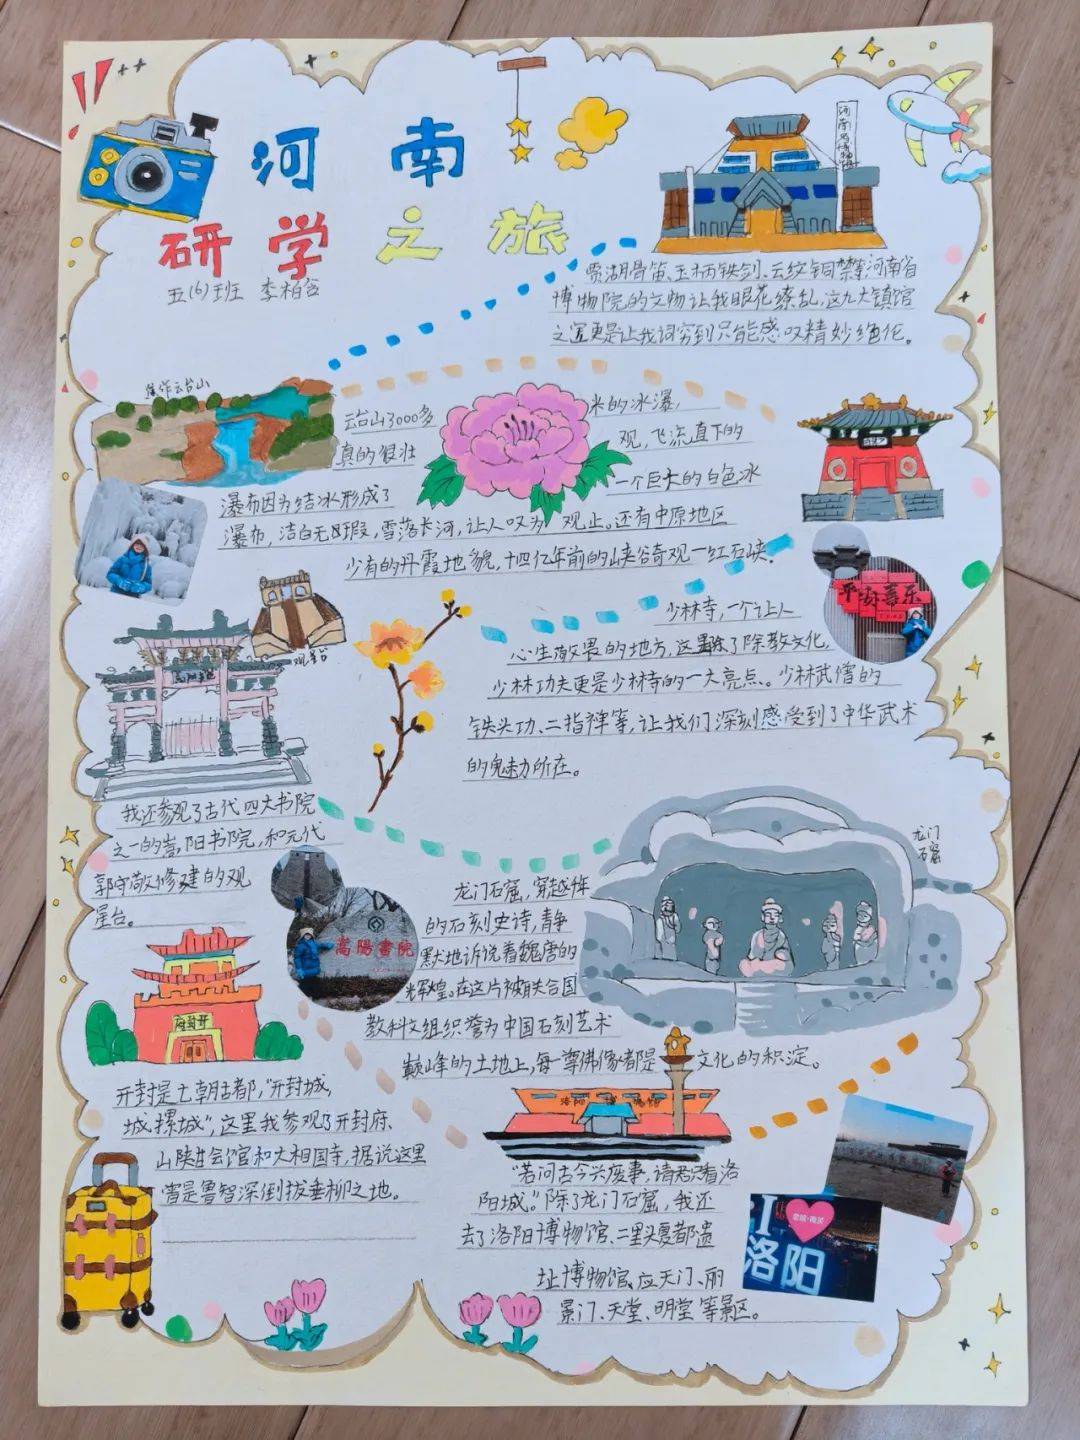 河南
研学之旅
五(6)班 李柏
河南博物院
贾湖骨笛、玉柄铁剑、云纹铜禁,河南省
博物院的文物让我眼花缭乱,这九大镇馆
之宝更是让我词穷到只能感叹精妙绝伦。
焦作云台山
云台山3000多
米的冰瀑,
真的很壮
观,飞流直下的
瀑布因为结冰形成了
一个巨大的白色冰
瀑布,洁白无瑕,雪落长河,让人叹为观止。还有中原地区
少有的丹霞地貌,十四亿年前的峡谷奇观一红石峡。
平安喜乐
少林寺,一个让人
心生敬畏的地方,这里除了除教文化,
少林功夫更是少林寺的一大亮点。少林武僧的
铁头功、二指禅等,让我们深刻感受到了中华武术
的魅力所在。
观星台
我还参观了古代四大书院
之一的嵩阳书院,和元代
郭守敬修建的观
星台。
嵩陽書院
龙门
石窟
龙门石窟,穿越千年
的石刻史诗,静
默地诉说着魏唐的
辉煌。在这片被联合国
教科文组织誉为中国石刻艺术
巅峰的土地上,每一尊佛像都是文化的积淀。
開封府
开封是七朝古都,“开封城,
城摞城”,这里我参观了开封府、
山陕甘会馆和大相国寺,据说这里
曾是鲁智深倒拔垂柳之地。
洛阳博物馆
“若问古今兴废事,请君只看洛
阳城。”除了龙门石窟,我还
去了洛阳博物馆、二里头夏都遗
址博物馆、应天门、丽
景门、天堂、明堂等景区。
I
洛阳